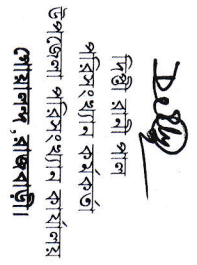 দিপ্তি রানী পাল
পরিসংখ্যান কর্মকর্তা
উপজেলা পরিসংখ্যান কার্যালয়
গোয়ালন্দ, রাজবাড়ী।